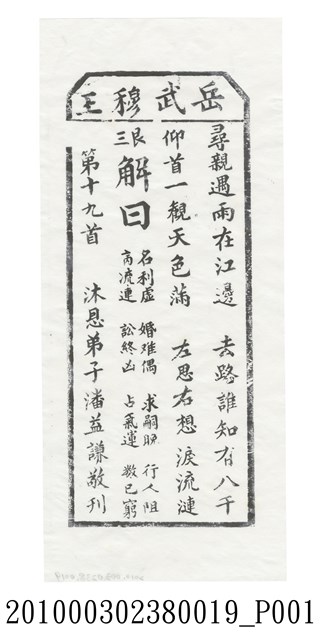 岳武穆王
尋親遇雨在江邊　去路誰知有八千
仰首一觀天色滿　左思右想淚流漣
艮三
解曰
名利虛　婚难偶　求嗣晚　行人阻
商流連　訟終凶　占氣運　数已窮
第十九首　沐恩弟子潘益謙敬刊
201000302380019_P001